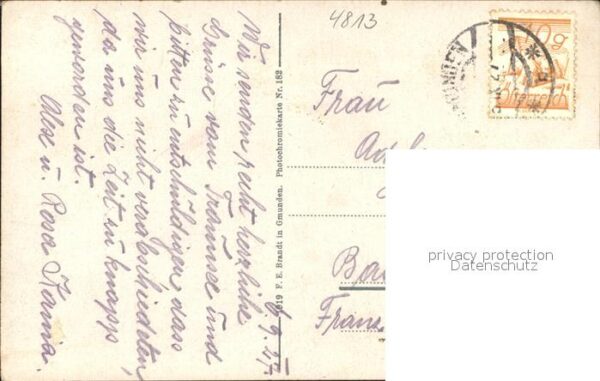 4813
Wir senden recht herzliche
Grüsse vom Traunsee und
bitten zu entschuldigen dass
wir uns nicht verabschiedeten,
da uns die Zeit zu knapp
geworden ist.
Rosa
6.9.27
1919 F. E. Brandt in Gmunden. Photochromiekarte Nr. 182
Frau
Ad
Ba
Franz
GMUNDEN
privacy protection
Datenschutz